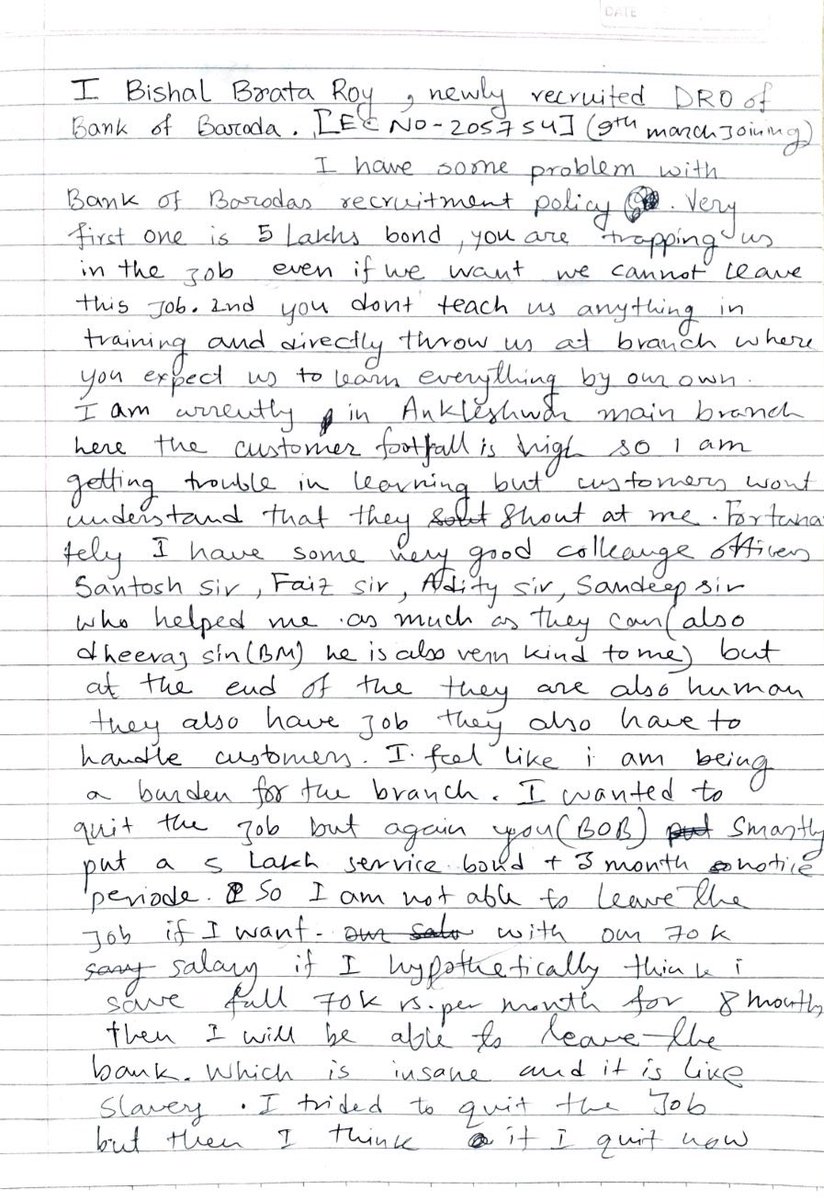 DATE
I Bishal Brata Roy, newly recruited DRO of
Bank of Baroda. [EC NO-205754] (9th march Joining)
I have some problem with
Bank of Barodas recruitment policy. Very
first one is 5 Lakhs bond, you are trapping us
in the job even if we want we cannot leave
this job. 2nd you dont teach us anything in
training and directly throw us at branch where
you expect us to learn everything by our own.
I am currently in Ankleshwar main branch
here the customer footfall is high so I am
getting trouble in learning but customers wont
understand that they shout at me. Fortuna
tely I have some very good colleauge officers
Santosh sir, Faiz sir, Adity sir, Sandeep sir
who helped me as much as they can (also
dheeraj sir (BM) he is also very kind to me) but
at the end of the they are also human
they also have job they also have to
handle customers. I feel like i am being
a burden for the branch. I wanted to
quit the job but again you (BOB) smartly
put a 5 Lakh service bond + 3 month notice
periode. So I am not able to leave the
job if I want. with our 70K
salary if I hypothetically think i
save full 70K rs. per month for 8 months
then I will be able to leave the
bank. Which is insane and it is like
slavery. I trided to quit the Job
but then I think if I quit now